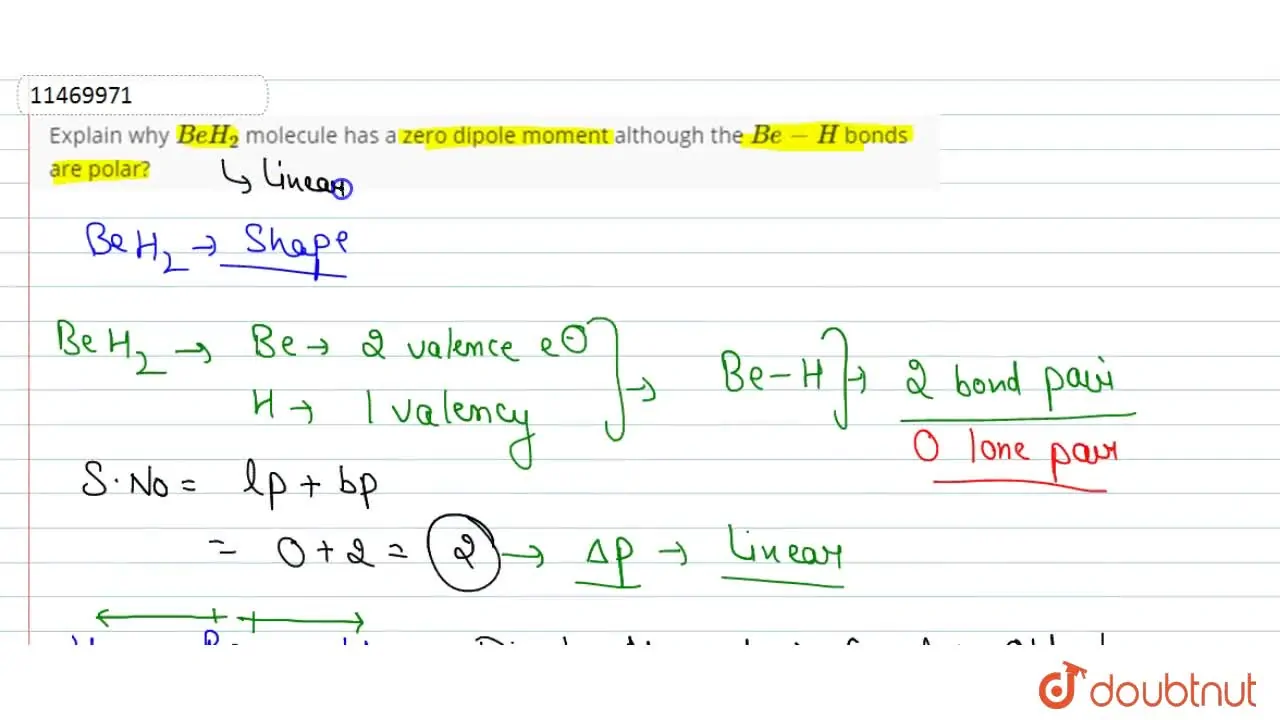 11469971
Explain why BeH₂ molecule has a zero dipole moment although the Be – H bonds
are polar?
↳ Linear
BeH₂ → Shape
BeH₂ → Be → 2 valence e⊖
H → 1 valency
→ Be–H → 2 bond pair
0 lone pair
S.No = lp + bp
= 0 + 2 = 2 → Δp → Linear
doubtnut